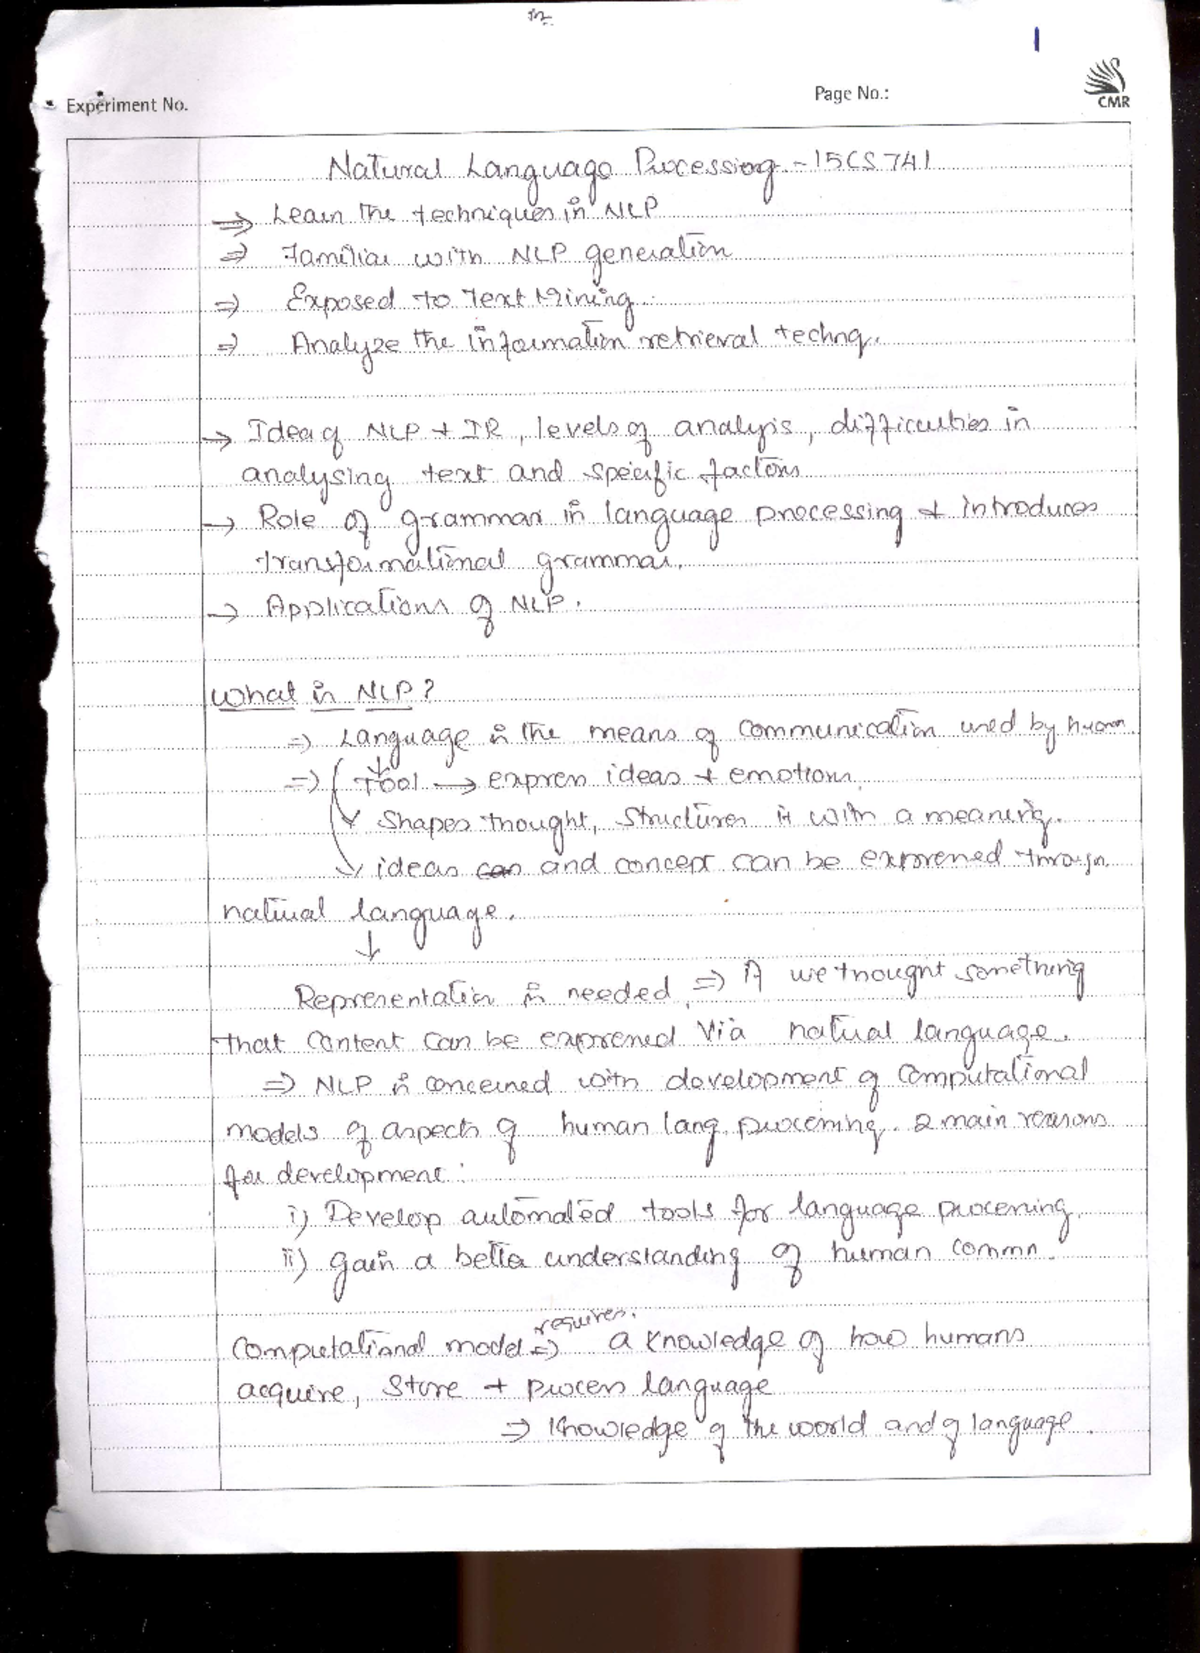 1
Experiment No.
Page No.:
CMR
Natural Language Processing - 15CS741
⇒ Learn the techniques in NLP
⇒ Familiar with NLP generation
⇒ Exposed to Text Mining.
⇒ Analyze the information retrieval technq.
→ Idea of NLP + IR, levels of analysis, difficulties in
analysing text and specific factors
→ Role of grammar in language processing + introduces
transformational grammar.
→ Applications of NLP.
What is NLP?
⇒ Language is the means of communication used by human
⇒ Tool → express ideas + emotions.
↓ Shapes thought, structures it with a meaning.
↓ ideas can and concept can be expressed through
natural language.
↓
Representation is needed ⇒ If we thought something
that content can be expressed via natural language.
⇒ NLP is concerned with development of computational
models of aspects of human lang. processing. 2 main reasons
for development:
i) Develop automated tools for language processing.
ii) gain a better understanding of human commn.
requires.
Computational model ⇒ a knowledge of how humans
acquire, store + process language
⇒ Knowledge of the world and of language.